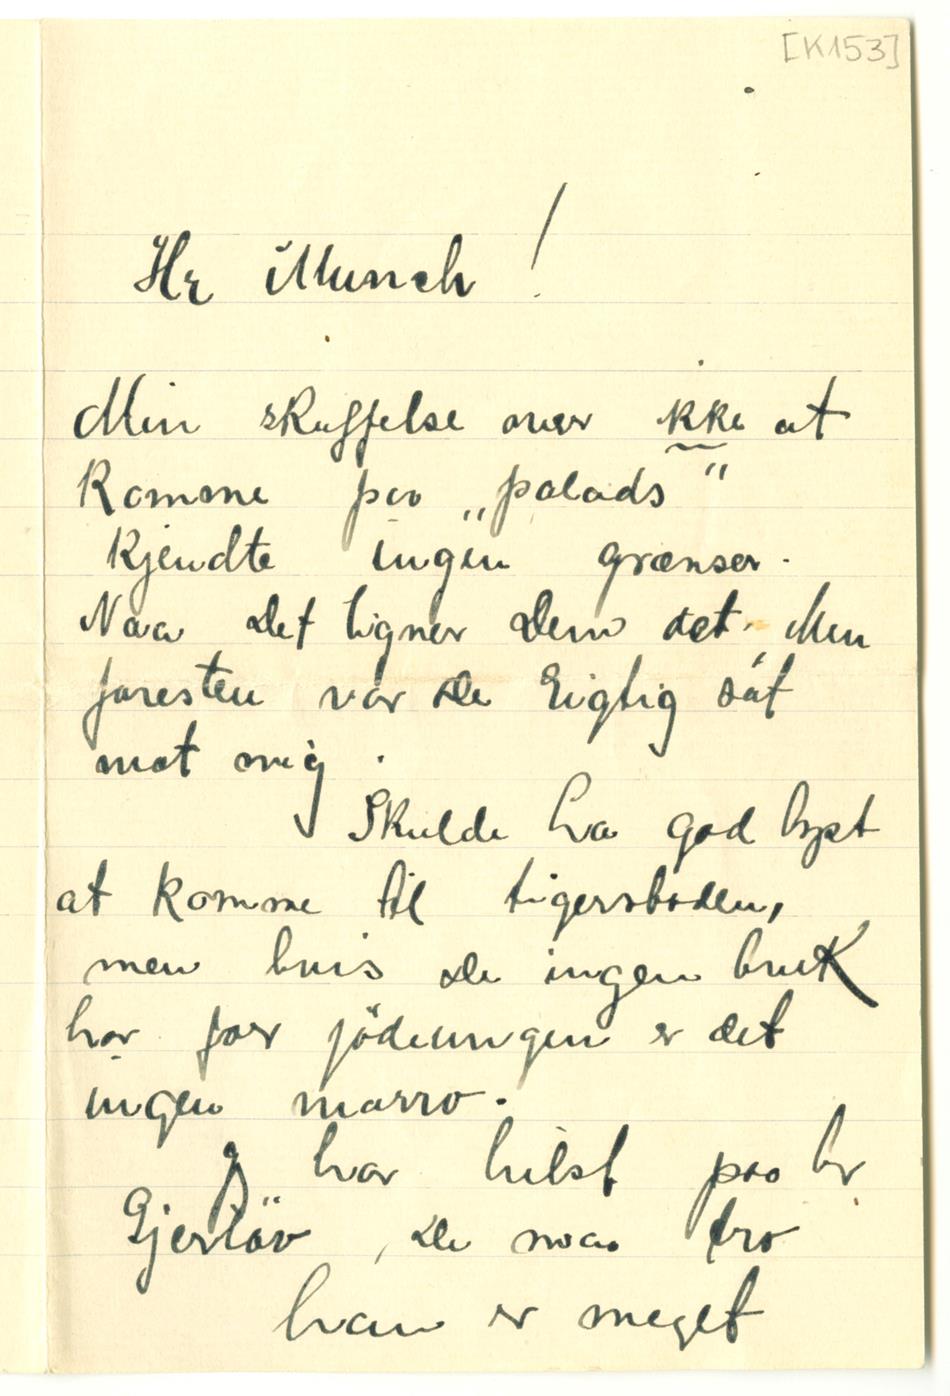 [K153]
Hr Munch!
Min skuffelse over ikke at
komme paa „palads"
kjendte ingen grænser.
Naa det ligner Dem det. Men
foresten var De rigtig söt
mot mig.
Skulde ha god lyst
at komme til tigerstaden,
men hvis De ingen bruk
har for jödeungen er det
ingen morro.
J har hilst paa hr
Gjerlöv, De maa tro
han er meget